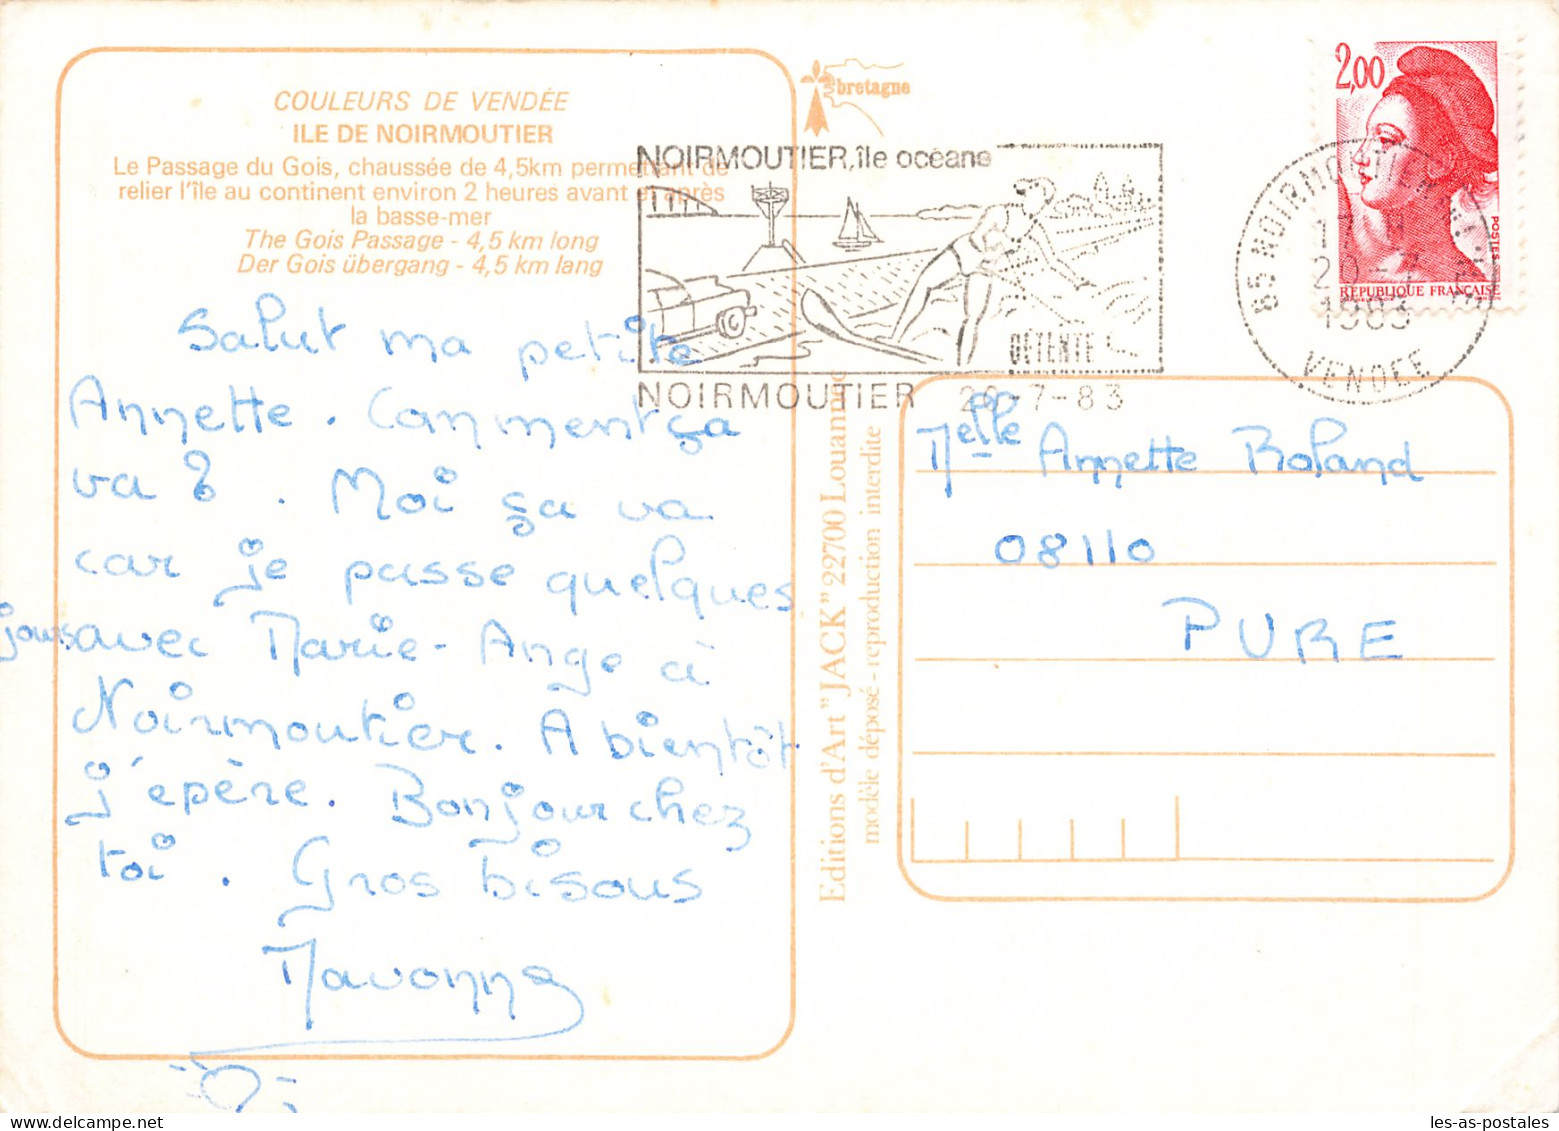 COULEURS DE VENDÉE
ILE DE NOIRMOUTIER
Le Passage du Gois, chaussée de 4,5km permettant de
relier l'île au continent environ 2 heures avant et après
la basse-mer
The Gois Passage - 4,5 km long
Der Gois übergang - 4,5 km lang
Salut ma petite
Annette. Comment ça
va ? . Moi ça va
car je passe quelques
jours avec Marie-Ange à
Noirmoutier. A bientôt
j'epère. Bonjour chez
toi. Gros bisous
bretagne
NOIRMOUTIER, île océane
DETENTE
NOIRMOUTIER 20-7-83
Editions d'Art "JACK" 22700 Louannec
modèle déposé - reproduction interdite
2,00
POSTES
REPUBLIQUE FRANÇAISE
85 NOIRMOUTIER
17 H
20-7
1983
VENDEE
Melle Annette Roland
08110
PURE
les-as-postales